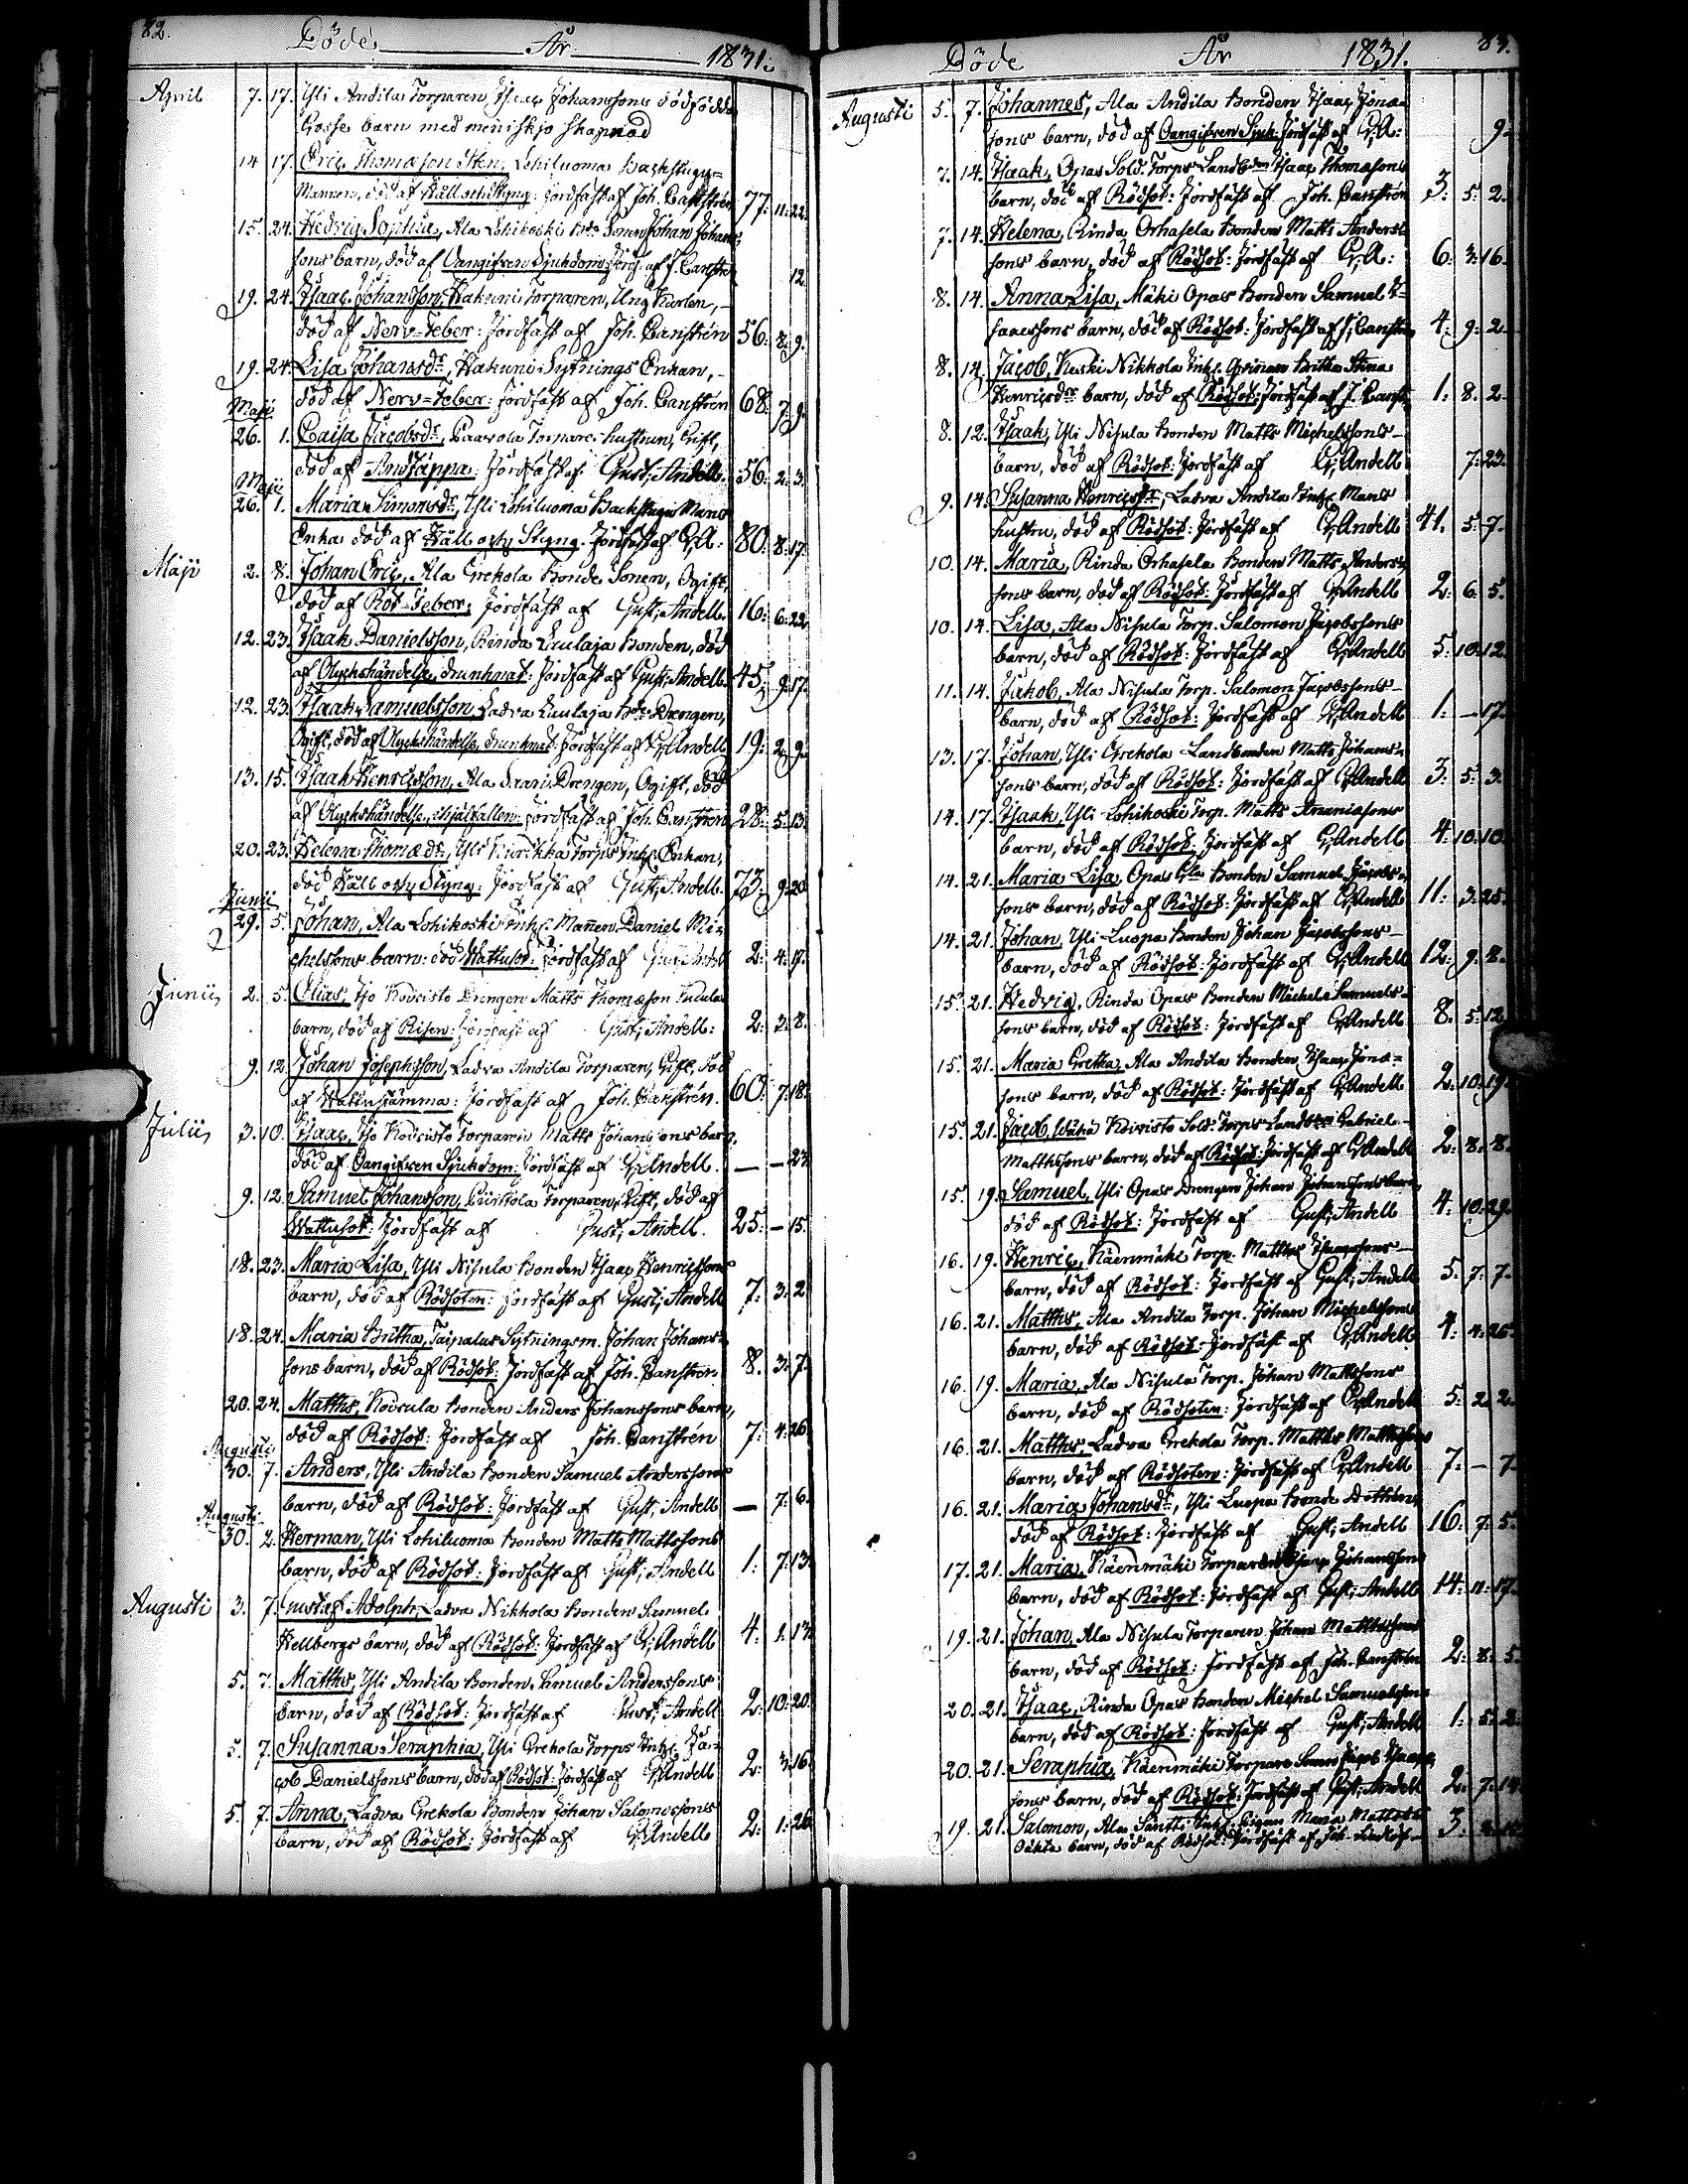 82.
Döde År 1831.
April 7. 17. Yli Andila Torparen Isaac Johanssons dödfödda
Gosse barn med menniskjo skapnad
14 17. Eric Thomæson Sten, Lohiluoma Backstugu-
Mannen, död af Håll och Styng: Jordfäst af Joh. Canstrén 77: 11: 22.
15. 24. Hedvig Sophia, Ala Lohikoski bde Sonen Johan Johans-
sons barn, död af Oangifven Sjukdom: Jordf. af J. Canstrén 12.
19. 24. Isaac Johansson, Hakuni Torparen, Ung Karlen,
död af Nerv=Feber: Jordfäst af Joh. Canstrén 56: 8: 9.
19. 24. Lisa Johansdr, Hakuni Sytnings Enkan,
död af Nerv=Feber: Jordfäst af Joh. Canstrén 68: 7: 9.
Maji
26. 1. Caisa Jacobsdr, Paavola Torpare hustrun, Gift,
död af Andtäppa: Jordfäst af Gust; Andell. 56: 2: 3.
Maji
26. 1. Maria Simonsdr, Yli Lohiluoma Backstugu Mans
Enka död af Håll och Styng. Jordfäst af G; A: 80: 8: 17.
Maji 2. 8. Johan Eric, Ala Grekola Bonde Sonen, Ogift,
död af Röt-Feber: Jordfäst af Gust; Andell. 16: 6: 22.
12. 23. Isaak Danielsson, Rinda Luulaja Bonden, död
af Olyckshändelse, drunknat: Jordfäst af Gust; Andell. 45: 9: 17.
12. 23. Isaak Samuelsson, Ladva Luulaja bde Drengen,
Ogift, död af Olyckshändelse, drunknat: Jordfäst af G; Andell 19: 2: 9.
13. 15. Isaak Henricsson, Ala Drengen, Ogift, död
af Olyckshändelse, ihjälfallen: Jordfäst af Joh. Canstrén 28: 5: 13.
20. 23. Helena Thomædr, Yli Kurikka Torps Inh. Enkan,
död Håll och Styng: Jordfäst af Gust; Andell. 73: 9: 20
Junii
29. 5. Johan, Ala Lohikoski Inh. Mannen Daniel Mi-
chelssons barn: död Wattusot: Jordfäst af Gust; Andell 2: 4: 17.
Junii 2. 5. Elias, Iso Koivisto Drengen Matts Thomæson
barn, död af Risen: Jordfäst af Gust; Andell: 2: 2: 8.
9. 12. Johan Josephsson, Ladva Andila Torparen, Gift, död
af Jordfäst af Joh. Canstrén. 60: 7: 18.
Julii 3. 10. Isaac, Iso Koivisto Torparen Matts Johanssons barn,
död af Oangifven Sjukdom: Jordfäst af G; Andell. — — 23
9. 12. Samuel Johansson, Torparen, Gift, död af
Wattusot: Jordfäst af Gust; Andell. 25: — 15.
18. 23. Maria Lisa, Yli Nisula Bonden Isaac Henricssons
barn, död af Rödsoten: Jordfäst af Gust; Andell 7: 3: 2
18. 24. Maria Britha, Taipalus Sytningsm. Johan Johans-
sons barn, död af Rödsot: Jordfäst af Joh. Canstrén 8. 3: 7.
20. 24. Matths, Koivula Bonden Anders Johanssons barn,
död af Rödsot: Jordfäst af Joh. Canstrén 7: 4: 26
Augusti
30. 7. Anders, Yli Andila Bonden Samuel Anderssons
barn, död af Rödsot: Jordfäst af Gust; Andell — 7: 6.
Augusti
30. 2. Herman, Yli Lohiluoma Bonden Matts Mattssons
barn, död af Rödsot: Jordfäst af Gust; Andell 1: 7: 13
Augusti 3. 7. Gustaf Adolph, Ladva Nikkola Bonden Samuel
Hellbergs barn, död af Rödsot: Jordfäst af G; Andell 4: 1: 13
5. 7. Matths, Yli Andila Bonden Samuel Anderssons
barn, död af Rödsot: Jordfäst af Gust; Andell 2: 10: 20.
5. 7. Susanna Seraphia, Yli Grekola Torps Inh. Ja-
cob Danielssons barn, död af Rödsot: Jordfäst af G; Andell 2: 3: 16.
5. 7. Anna, Ladva Grekola Bonden Johan Salomossons
barn, död af Rödsot: Jordfäst af G; Andell 2: 1: 26
83.
Döde År 1831.
Augusti 5. 7. Johannes, Ala Andila Bonden Isaac Jona-
sons barn, död af Oangifven Sjuk: Jordfäst af G; A: 9.
7. 14. Isaak, Opas Sold. Torps Landbden Isaac Thomæsons
barn, död af Rödsot: Jordfäst af Joh. Canstrén 3: 5: 2.
7. 14. Helena, Rinda Orhasela Bonden Matts Anders-
sons barn, död af Rödsot: Jordfäst af G; A: 6: 3: 16.
8. 14. Anna Lisa, Mäki Opas Bonden Samuel I-
saacssons barn, död af Rödsot: Jordfäst af J; Canstrén 4: 9: 2.
8. 14. Jacob, Keski Nikkola Inh. Qvinnan Britha Stina
Henricsdrs barn, död af Rödsot: Jordfäst af J. Canst; 1: 8. 2.
8. 12. Isaak, Yli Nisula Bonden Matts Michelssons
barn, död af Rödsot: Jordfäst af G; Andell 7: 23.
9. 14. Susanna Henricsdr, Ladva Andila Inh. Mans
hustru, död af Rödsot: Jordfäst af G; Andell 41. 5: 7.
10. 14. Maria, Rinda Orhasela Bonden Matts Anders-
sons barn, död af Rödsot: Jordfäst af G; Andell 2: 6: 5.
10. 14. Lisa, Ala Nisula Torp. Salomon Jacobssons
barn, död af Rödsot: Jordfäst af G; Andell 5: 10: 12.
11. 14. Jakob, Ala Nisula Torp. Salomon Jacobssons
barn, död af Rödsot: Jordfäst af G; Andell 1: — 17.
13. 17. Johan, Yli Grekola Landbonden Matts Johans-
sons barn, död af Rödsot: Jordfäst af G; Andell 3: 5: 3.
14. 17. Isaak, Yli Lohikoski Torp. Matts Ananiasons
barn, död af Rödsot: Jordfäst af G; Andell 4: 10: 10.
14. 21. Maria Lisa, Opas Bonden Samuel Jacobs-
sons barn, död af Rödsot: Jordfäst af G; Andell 11: 3: 25.
14. 21. Johan, Yli Luopa Bonden Johan Jacobssons
barn, död af Rödsot: Jordfäst af G; Andell 12: 9: 8.
15. 21. Hedvig, Rinda Opas Bonden Michel Samuels-
sons barn, död af Rödsot: Jordfäst af G; Andell 8. 5: 12
15. 21. Maria Gretha, Ala Andila Bonden Isaac Jona-
sons barn, död af Rödsot: Jordfäst af G; Andell 2: 10: 19.
15. 21. Jacob, Wähä Koivisto Sold. Torps Landbden Gabriel
Matthssons barn, död af Rödsot: Jordfäst af G; Andell 2: 8: 8.
15. 19. Samuel, Yli Opas Drengen Johan Johanssons barn,
död af Rödsot: Jordfäst af Gust; Andell 4: 10: 29.
16. 19. Henric, Käenmäki Torp. Matths Isaacssons
barn, död af Rödsot: Jordfäst af Gust; Andell 5: 7: 7.
16. 21. Matths, Ala Andila Torp. Johan Michelssons
barn, död af Rödsot: Jordfäst af G; Andell 4: 4: 25.
16. 19. Maria, Ala Nisula Torp. Johan Mattssons
barn, död af Rödsoten: Jordfäst af G; Andell 5: 2: 2.
16. 21. Matths, Ladva Grekola Torp. Matths Matthssons
barn, död af Rödsoten: Jordfäst af G; Andell 7: — 7
16. 21. Maria Johansdr, Yli Luopa Bonde Dottren,
död af Rödsot: Jordfäst af Gust; Andell 16: 7: 5.
17. 21. Maria, Käenmäki Torparen Isaac Johanssons
barn, död af Rödsot: Jordfäst af Gust; Andell 14: 11: 17.
19. 21. Johan, Ala Nisula Torparen Johan Matthssons
barn, död af Rödsot: Jordfäst af Joh. Canstrén 2: 8: 5.
20. 21. Isaac, Rinda Opas Bonden Michel Samuelssons
barn, död af Rödsot: Jordfäst af Gust; Andell 1: 5: 2.
20. 21. Seraphia, Käenmäki Torpare Sonen Jacob Isaacs-
sons barn, död af Rödsot: Jordfäst af Gust; Andell 2: 7: 14
19. 21. Salomon, Ala Säntti Inh. Pigan Maria Mattsdrs
Oäkta barn, död af Rödsot: Jordfäst af 3: